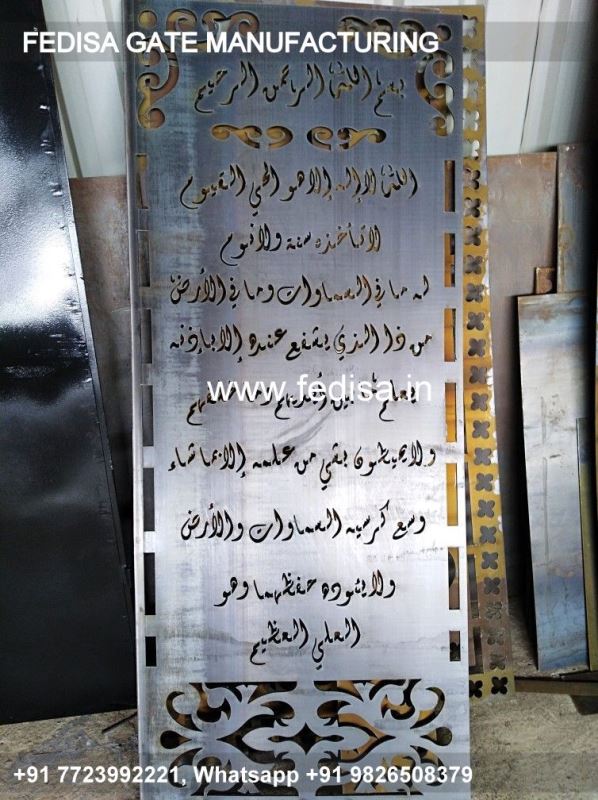 FEDISA GATE MANUFACTURING
بسم الله الرحمن الرحيم
الله لا إله إلا هو الحي القيوم
لا تأخذه سنة ولا نوم
له ما في السماوات وما في الأرض
من ذا الذي يشفع عنده إلا بإذنه
يعلم بين أيديهم وما خلفهم
www.fedisa.in
ولا يحيطون بشيء من علمه إلا بما شاء
وسع كرسيه السماوات والأرض
ولا يئوده حفظهما وهو
العلي العظيم
+91 7723992221, Whatsapp +91 9826508379